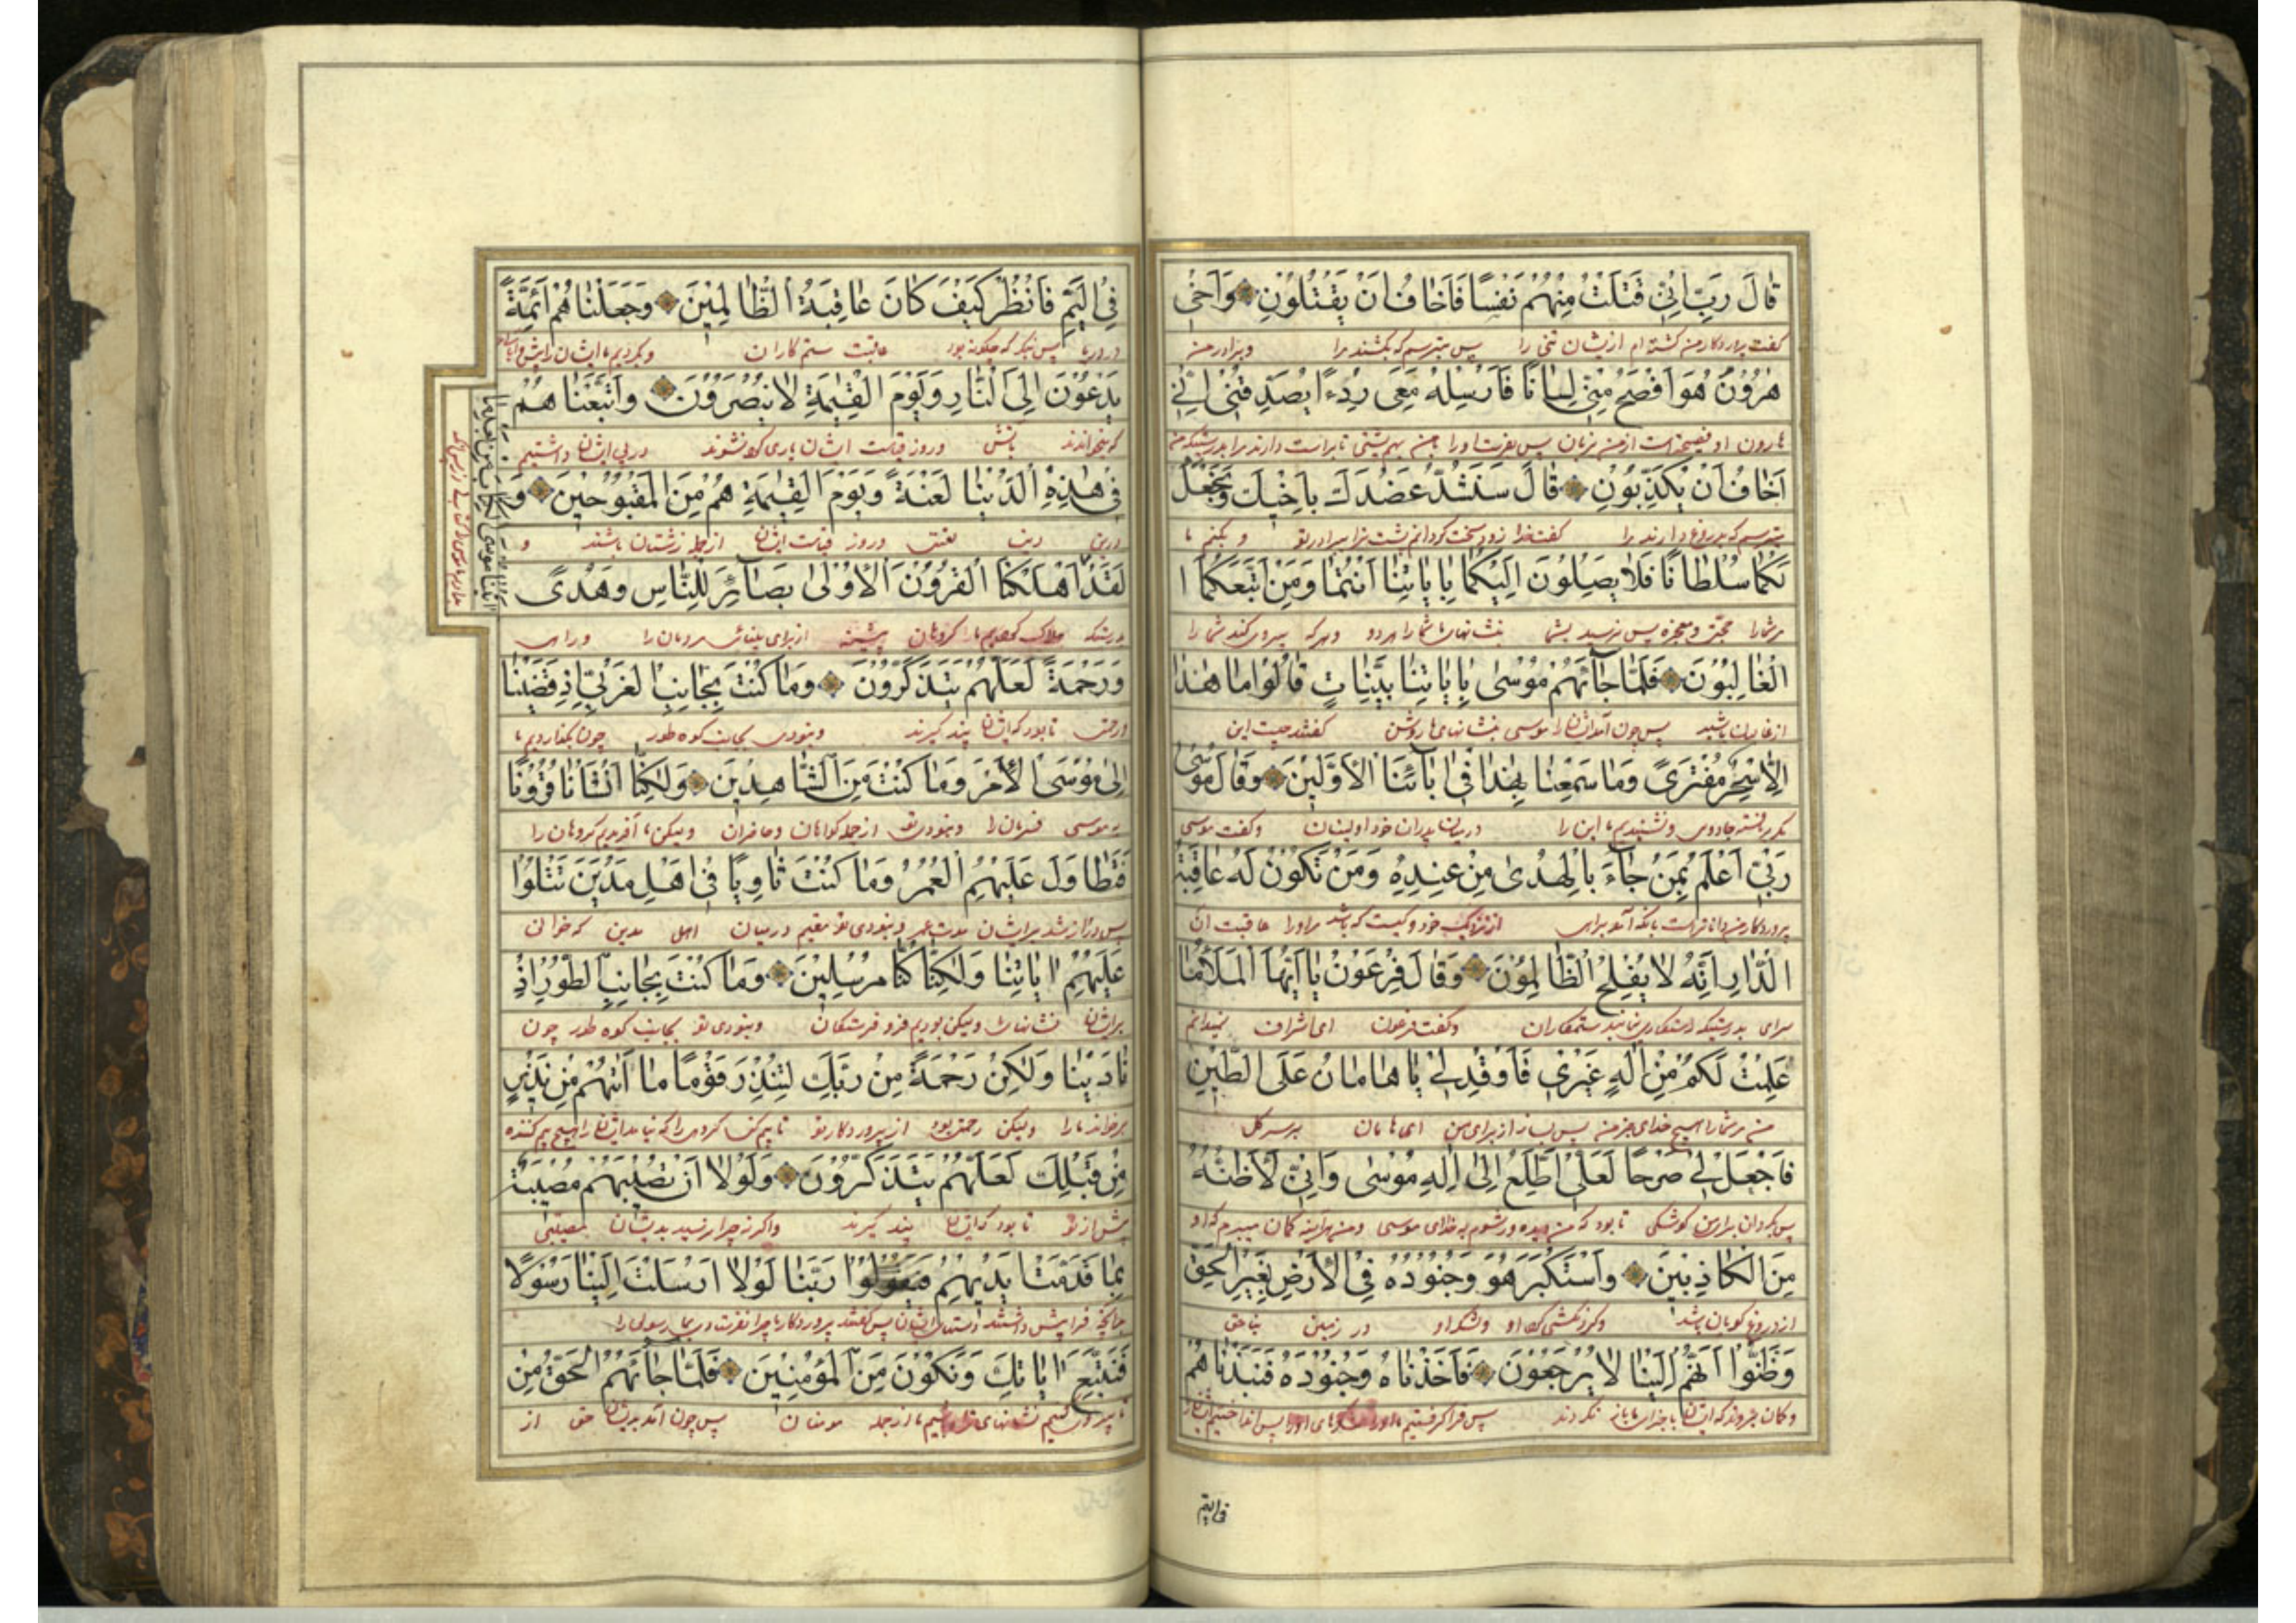 قَالَ رَبِّ اِنِّي قَتَلْتُ مِنْهُمْ نَفْسًا فَاَخَافُ اَنْ يَقْتُلُوْنِ وَاَخِيْ
گفت پروردگار من کشته ام از یشان تنی را پس میترسم که بکشند مرا و برادر من
هٰرُوْنُ هُوَ اَفْصَحُ مِنِّيْ لِسَانًا فَاَرْسِلْهُ مَعِيَ رِدْءًا يُصَدِّقُنِيْ اِنِّيْ
هارون او فصیحترست از من بزبان پس بفرست او را با من
اَخَافُ اَنْ يُكَذِّبُوْنِ قَالَ سَنَشُدُّ عَضُدَكَ بِاَخِيْكَ وَنَجْعَلُ
میترسم که بدروغ دارند مرا گفت خدا زود سخت گردانم پشت ترا ببرادر تو و بکنم ما
لَكُمَا سُلْطَانًا فَلَا يَصِلُوْنَ اِلَيْكُمَا بِاٰيَاتِنَا اَنْتُمَا وَمَنِ اتَّبَعَكُمَا ا
مرشما را حجتی و معجزه پس نرسند بشما بنشانهای ما شما را هر دو و هر که پیروی کند شما را
الْغَالِبُوْنَ فَلَمَّا جَآءَهُمْ مُوْسٰى بِاٰيَاتِنَا بَيِّنَاتٍ قَالُوْا مَا هٰذَا
از غالبان باشید پس چون آمد ایشان را موسی بنشانهای ما روشن گفتند چیست این
اِلَّا سِحْرٌ مُفْتَرًى وَمَا سَمِعْنَا بِهٰذَا فِيْ اٰبَآئِنَا الْاَوَّلِيْنَ وَقَالَ مُوْسٰى
مگر بافته جادوی و نشنیدیم ما این را در میان پدران خود اولینان و گفت موسی
رَبِّيْ اَعْلَمُ بِمَنْ جَآءَ بِالْهُدٰى مِنْ عِنْدِهٖ وَمَنْ تَكُوْنُ لَهٗ عَاقِبَةُ
پروردگار من داناترست بانکه آمد براه راست از نزدیک خود و کیست که باشد مر او را عاقبت آن
الدَّارِ اِنَّهٗ لَا يُفْلِحُ الظَّالِمُوْنَ وَقَالَ فِرْعَوْنُ يَا اَيُّهَا الْمَلَاُ مَا
سرای بدرستیکه رستگاری نیابند ستمکاران و گفت فرعون ای اشراف نمیدانم
عَلِمْتُ لَكُمْ مِنْ اِلٰهٍ غَيْرِيْ فَاَوْقِدْ لِيْ يَا هَامَانُ عَلَى الطِّيْنِ
من مرشما را هیچ خدای جز من پس بساز از برای من ای هامان بر سر گل
فَاجْعَلْ لِيْ صَرْحًا لَعَلِّيْ اَطَّلِعُ اِلٰى اِلٰهِ مُوْسٰى وَاِنِّيْ لَاَظُنُّهٗ
پس بگردان برای من کوشکی تا بود که من دیده ور شوم به خدای موسی و من هر آینه گمان میبرم که او
مِنَ الْكَاذِبِيْنَ وَاسْتَكْبَرَ هُوَ وَجُنُوْدُهٗ فِي الْاَرْضِ بِغَيْرِ الْحَقِّ
از دروغ گویان باشد و گردنکشی کرد او و لشکر او در زمین بناحق
وَظَنُّوْا اَنَّهُمْ اِلَيْنَا لَا يُرْجَعُوْنَ فَاَخَذْنَاهُ وَجُنُوْدَهٗ فَنَبَذْنَاهُمْ
و گمان بردند که ایشان باز نگردند پس فرا گرفتیم ما او را و لشکرهای او را پس انداختیم ایشان را
فی الیم
فِي الْيَمِّ فَانْظُرْ كَيْفَ كَانَ عَاقِبَةُ الظَّالِمِيْنَ وَجَعَلْنَاهُمْ اَئِمَّةً
در دریا پس بنگر که چگونه بود عاقبت ستم کاران و بکردیم ما ایشان را
يَدْعُوْنَ اِلَى النَّارِ وَيَوْمَ الْقِيٰمَةِ لَا يُنْصَرُوْنَ وَاَتْبَعْنَاهُمْ
که میخوانند بآتش و روز قیامت ایشان یاری کرده نشوند و در پی ایشان داشتیم
فِيْ هٰذِهِ الدُّنْيَا لَعْنَةً وَيَوْمَ الْقِيٰمَةِ هُمْ مِنَ الْمَقْبُوْحِيْنَ وَ
درین لعنتی و روز قیامت ایشان از جمله زشتان باشند و
لَقَدْ اٰتَيْنَا مُوْسَى الْكِتَابَ مِنْ بَعْدِ مَا
اَهْلَكْنَا الْقُرُوْنَ الْاُوْلٰى بَصَآئِرَ لِلنَّاسِ وَهُدًى
بدرستیکه هلاک کردیم ما گروهان پیشینه از برای بینائی مردمان را و راه
وَرَحْمَةً لَعَلَّهُمْ يَتَذَكَّرُوْنَ وَمَا كُنْتَ بِجَانِبِ الْغَرْبِيِّ اِذْ قَضَيْنَا
و رحمت تا بود که ایشان پند گیرند و نبودی بجانب کوه طور چون بگذاردیم ما
اِلٰى مُوْسَى الْاَمْرَ وَمَا كُنْتَ مِنَ الشَّاهِدِيْنَ وَلٰكِنَّا اَنْشَاْنَا قُرُوْنًا
به موسی فرمان را و نبودی تو از جمله گواهان و حاضران و لیکن ما آفریدیم گروهان را
فَتَطَاوَلَ عَلَيْهِمُ الْعُمُرُ وَمَا كُنْتَ ثَاوِيًا فِيْ اَهْلِ مَدْيَنَ تَتْلُوْا
پس دراز شد بر ایشان مدت عمر و نبودی تو مقیم در میان اهل مدین که خوانی
عَلَيْهِمْ اٰيَاتِنَا وَلٰكِنَّا كُنَّا مُرْسِلِيْنَ وَمَا كُنْتَ بِجَانِبِ الطُّوْرِ اِذْ
بر ایشان نشانهای ما و لیکن بودیم فرو فرستگان و نبودی تو بجانب کوه طور چون
نَادَيْنَا وَلٰكِنْ رَحْمَةً مِنْ رَبِّكَ لِتُنْذِرَ قَوْمًا مَا اَتٰهُمْ مِنْ نَذِيْرٍ
و لیکن رحمتی بود از پروردگار تو تا بیم کنی گروهی را که نیامد ایشان را هیچ بیم کننده
مِنْ قَبْلِكَ لَعَلَّهُمْ يَتَذَكَّرُوْنَ وَلَوْلَا اَنْ تُصِيْبَهُمْ مُصِيْبَةٌ
پیش از تو تا بود که ایشان پند گیرند و اگر نه چرا رسید بدیشان مصیبتی
بِمَا قَدَّمَتْ اَيْدِيْهِمْ فَيَقُوْلُوْا رَبَّنَا لَوْلَا اَرْسَلْتَ اِلَيْنَا رَسُوْلًا
بدانچه فرا پیش داشتند دستهای ایشان پس گفتند پروردگار ما چرا نفرستادی بما رسولی را
فَنَتَّبِعَ اٰيَاتِكَ وَنَكُوْنَ مِنَ الْمُؤْمِنِيْنَ فَلَمَّا جَآءَهُمُ الْحَقُّ مِنْ
تا پیروی کنیم نشانهای از جمله مومنان پس چون آمد بدیشان حق از